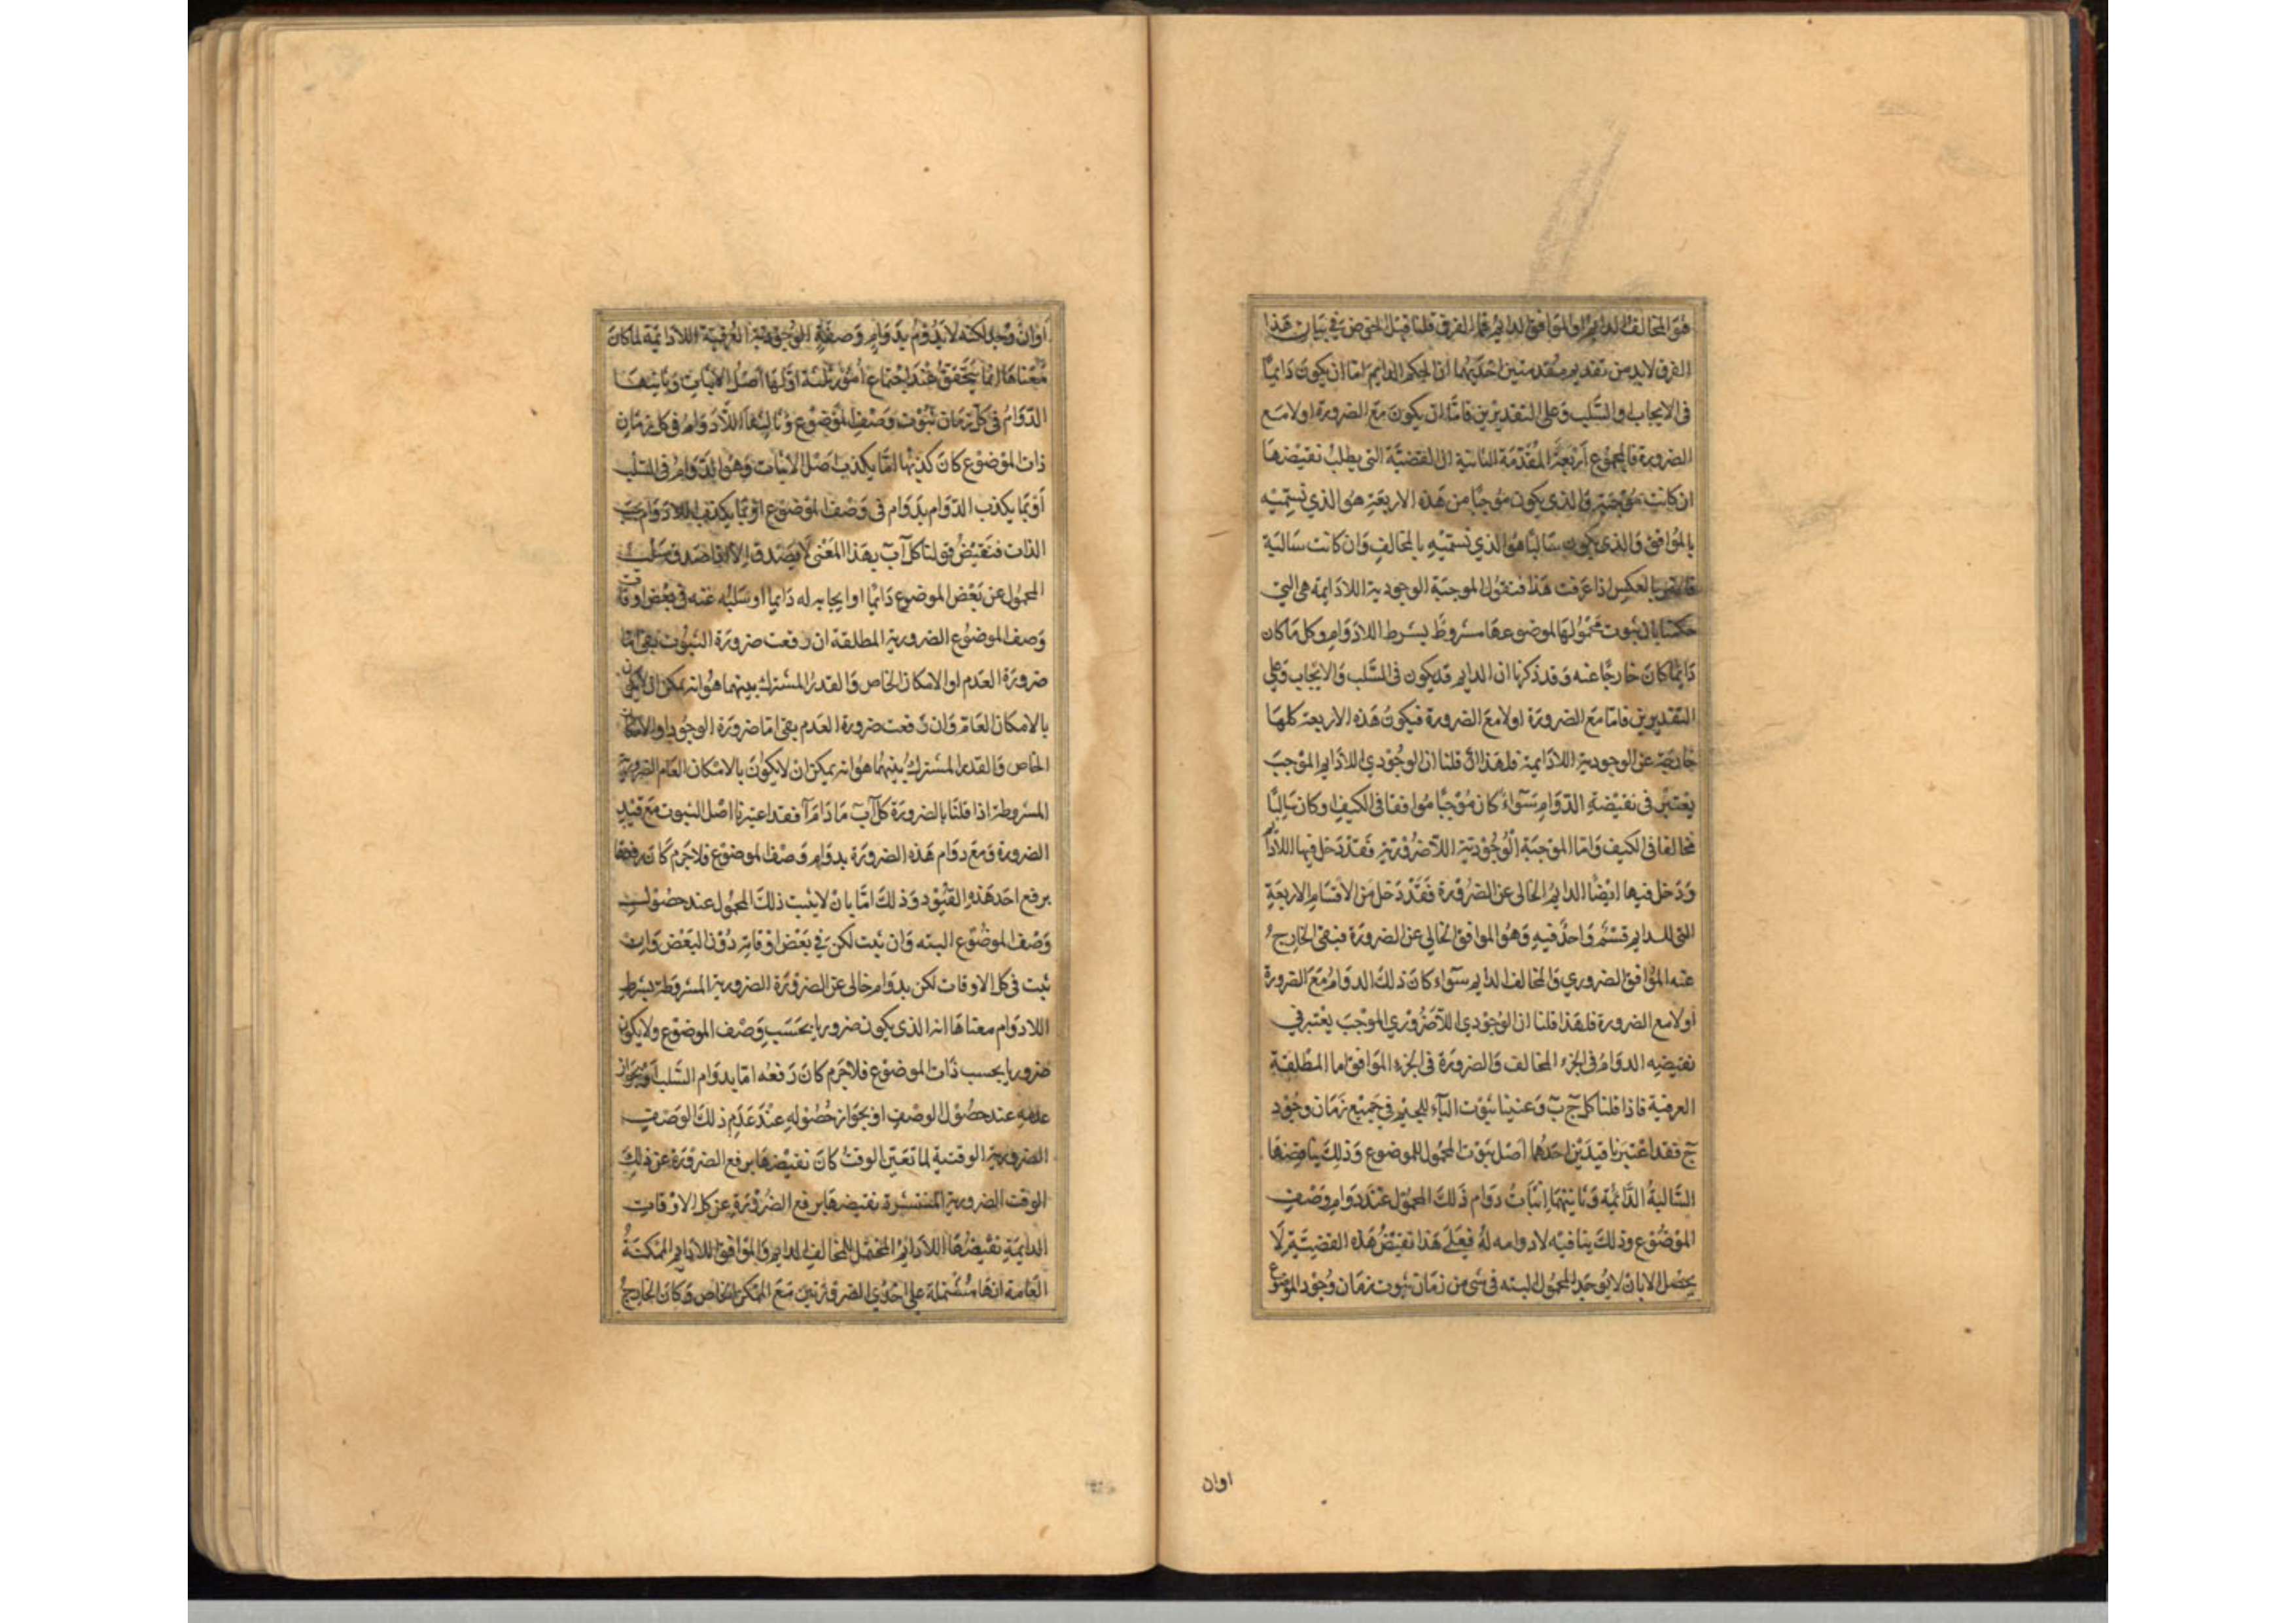 هو المخالف الدايم او الموافق الدايم فما الفرق قلنا قبل الخوض في بيان هذا
الفرق لابد من تقديم مقدمتين احديهما ان الحكم الدايم اما ان يكون دايما
فى الايجاب او السلب وعلى التقديرين فاما ان يكون مع الضرورة او لا مع
الضرورة فالمجموع اربعة المقدمة الثانية ان القضية التى يطلب نقيضها
ان كانت موجبة فالذى يكون موجبا من هذه الاربعة هو الذي نسميه
بالموافق والذى يكون سالبا هو الذي نسميه بالمخالف وان كانت سالبة
فالامر بالعكس اذا عرفت هذا فنقول الموجبة الوجودية اللادايمة هى التي
حكمنا بان ثبوت محمولها لموضوعها مشروط بشرط اللادوام وكل ما كان
دايما كان خارجا عنه وقد ذكرنا ان الدايم قد يكون فى السلب والايجاب وعلى
التقديرين فاما مع الضرورة او لا مع الضرورة فيكون هذه الاربعة كلها
خارجة عن الوجودية اللادايمة فلهذا قلنا ان الوجودي اللادايم الموجب
يعتبر فى نقيضه الدوام سواء كان موجبا موافقا فى الكيف او كان سالبا
مخالفا فى الكيف واما الموجبة الوجودية اللاضرورية فقد دخل فيها اللادايم
ودخل فيها ايضا الدايم الخالى عن الضرورة فقد دخل من الاقسام الاربعة
التى للدايم قسم واحد فيه وهو الموافق الخالي عن الضرورة فبقى الخارج
عنه الموافق الضروري والمخالف الدايم سواء كان ذلك الدوام مع الضرورة
او لا مع الضرورة فلهذا قلنا ان الوجودي اللاضروري الموجب يعتبر في
نقيضه الدوام فى الجزء المخالف والضرورة فى الجزء الموافق اما المطلقة
العرفية فاذا قلنا كل ج ب وعنينا ثبوت الباء للجيم في جميع زمان وجود
ج فقد اعتبرنا قيدين احدهما اصل ثبوت المحمول للموضوع وذلك يناقضها
السالبة الدائمة وثانيتهما اثبات دوام ذلك المحمول عند دوام وصف
الموضوع وذلك ينافيه لادوامه له فعلى هذا نقيض هذه القضية لا
يحصل الا بان لا يوجد المحمول البته فى شى من زمان ثبوت زمان وجود الموضوع
اوان
او ان وجد لكنه لا يدوم بدوام وصفة الوجودية العرفية اللادائمة لما كان
معناها انما يتحقق عند اجتماع امور ثلثة اولها اصل الاثبات وثانيها
الدوام فى كل زمان ثبوت وصف الموضوع وثالثها اللادوام فى كل زمان
ذات الموضوع كان كذبها اما يكذب اصل الاثبات وهو الدوام فى السلب
او بما يكذب الدوام بدوام فى وصف الموضوع او بما يكذب اللادوام بحسب
الذات فنقيض قولنا كل آ ب بهذا المعنى لا يصدق الا اذا صدق سلب
المحمول عن بعض الموضوع دائما او ايجابه له دايما او سلبه عنه فى بعض اوقات
وصف الموضوع الضرورية المطلقة ان رفعت ضرورة الثبوت بقى اما
ضرورة العدم او الامكان الخاص والقدر المشترك بينهما هو انه يمكن ان لا يكون
بالامكان العام وان رفعت ضرورة العدم بقى اما ضرورة الوجود او الامكان
الخاص والقدر المشترك بينهما هو انه يمكن ان لا يكون بالامكان العام الضرورية
المشروطة اذا قلنا بالضرورة كل آ ب ما دام آ فقد اعتبرنا اصل الثبوت مع قيد
الضرورة ومع دوام هذه الضرورة بدوام وصف الموضوع فلا جرم كان رفعها
برفع احد هذه القيود وذلك اما بان لا يثبت ذلك المحمول عند حصول
وصف الموضوع البته وان ثبت لكن في بعض اوقاته دون البعض وان
ثبت فى كل الاوقات لكن بدوام خالى عن الضرورة الضرورية المشروطة بشرط
اللادوام معناها انه الذى يكون ضروريا بحسب وصف الموضوع ولا يكون
ضروريا بحسب ذات الموضوع فلا جرم كان رفعه اما بدوام السلب او بجواز
عدمه عند حصول الوصف او بجواز حصوله عند عدم ذلك الوصف
الضرورية الوقتية لما تعين الوقت كان نقيضها برفع الضرورة عن ذلك
الوقت الضرورية المنتشرة نقيضها برفع الضرورة عن كل الاوقات
الدائمة نقيضها اللادايم المحتمل للمخالف الدايم والموافق اللادايم الممكنة
العامة انها مشتملة على احدى الضرورتين مع الممكن الخاص وكان الخارج